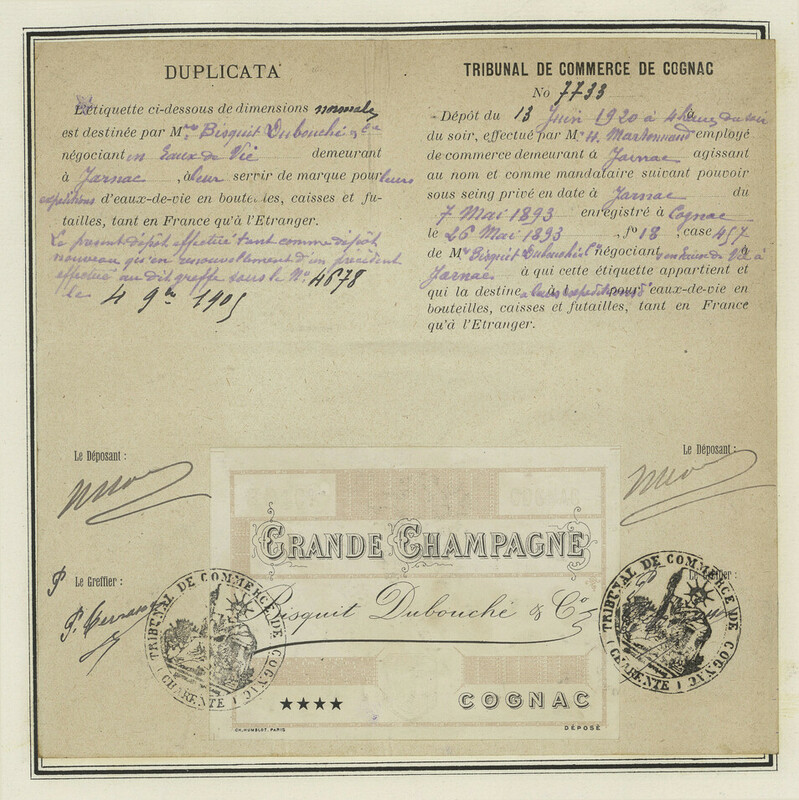 DUPLICATA
L'étiquette ci-dessous de dimensions normales
est destinée par Mrs Bisquit Dubouché & Cie
négociant en Eaux de Vie demeurant
à Jarnac, à leur servir de marque pour leurs
expéditions d'eaux-de-vie en bouteilles, caisses et fu-
tailles, tant en France qu'à l'Etranger.
Le présent dépôt effectué tant comme dépôt
nouveau qu'en renouvellement d'un précédent
effectué au dit greffe sous le No. 4678
le 4 9bre 1905
TRIBUNAL DE COMMERCE DE COGNAC
No 7733
Dépôt du 13 Juin 1920 à 4 heures du soir
du soir, effectué par Mr H. employé
de commerce demeurant à Jarnac agissant
au nom et comme mandataire suivant pouvoir
sous seing privé en date à Jarnac du
7 Mai 1893 enregistré à Cognac
le 26 Mai 1893, fo 18 case 457
de Mrs Bisquit Dubouché & Cie négociant en Eaux de Vie à
Jarnac à qui cette étiquette appartient et
qui la destine à leurs expéditions d'eaux-de-vie en
bouteilles, caisses et futailles, tant en France
qu'à l'Etranger.
Le Déposant :
Le Déposant :
Le Greffier :
Le Greffier :
GRANDE CHAMPAGNE
Bisquit Dubouché & Co
★★★★ COGNAC
CH. HUMBLOT, PARIS
DÉPOSÉ
TRIBUNAL DE COMMERCE DE COGNAC
(CHARENTE)
TRIBUNAL DE COMMERCE DE COGNAC
(CHARENTE)